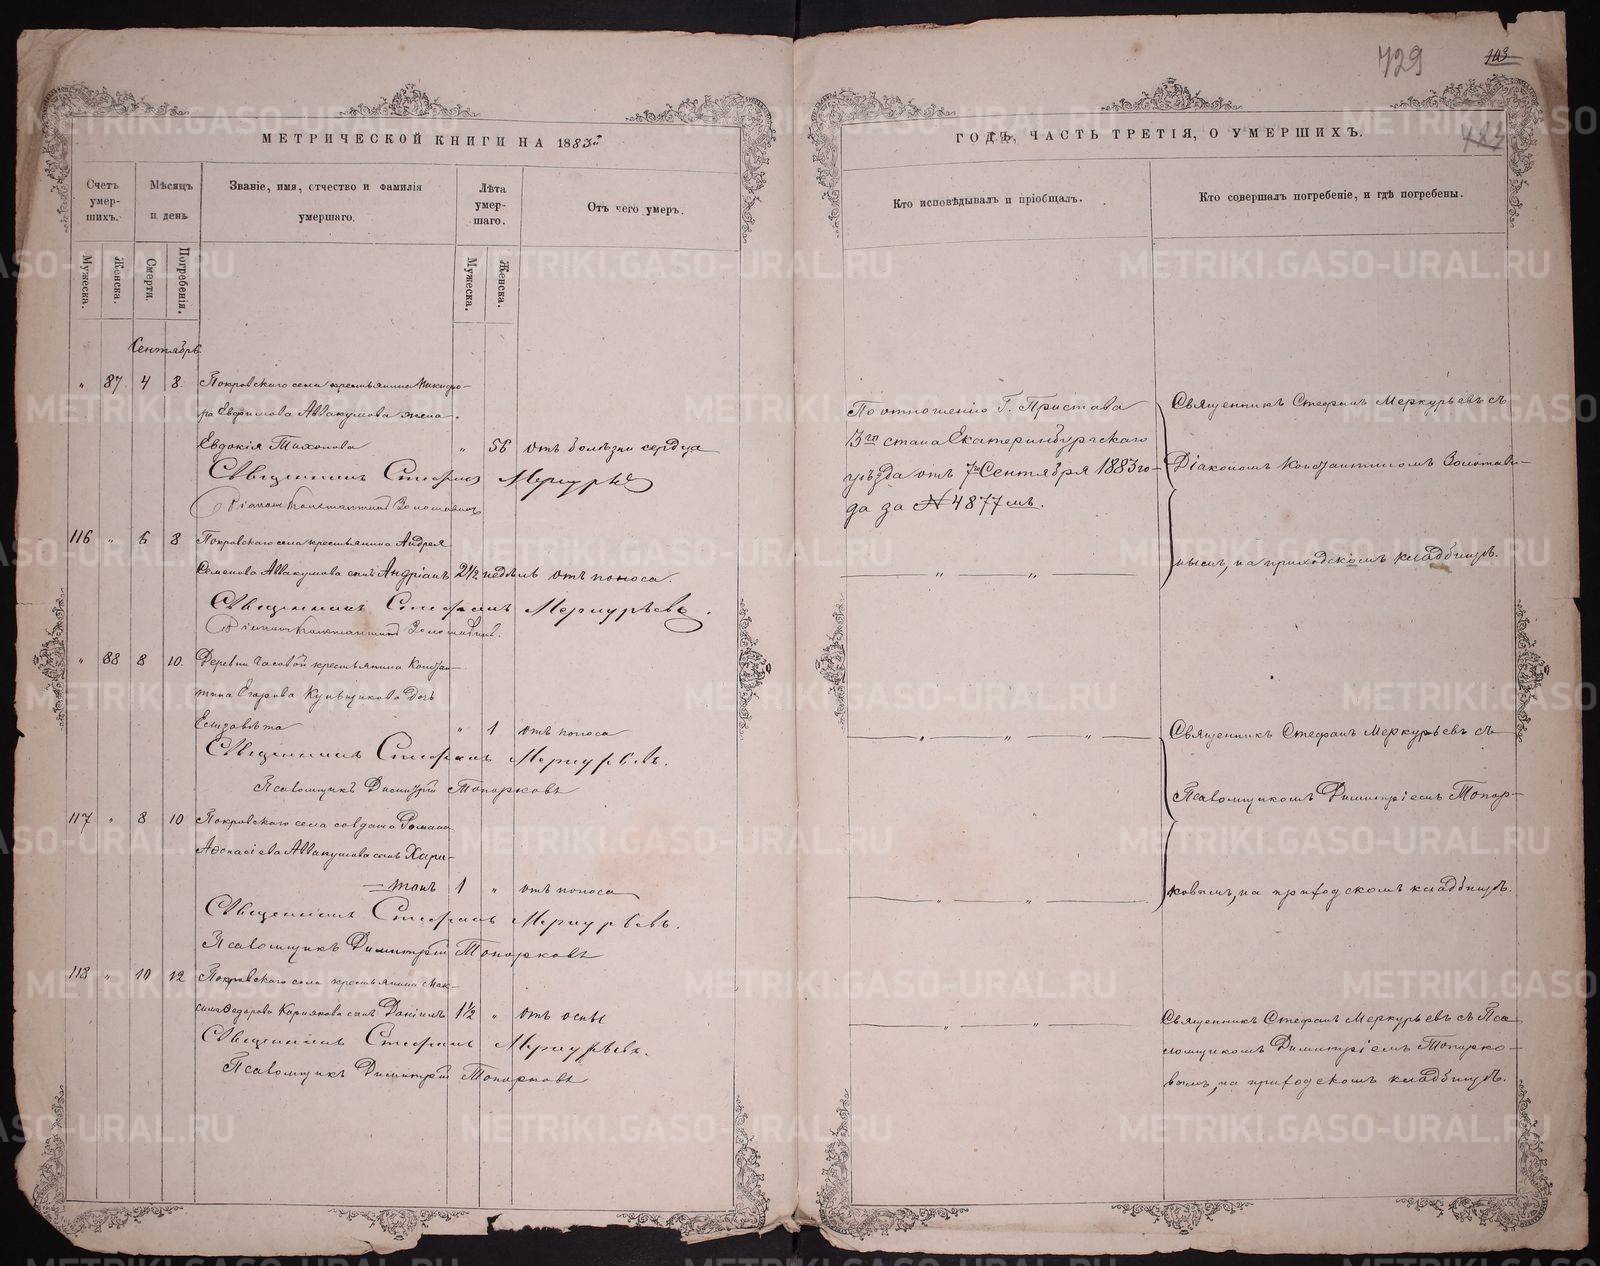 729
743
483
МЕТРИЧЕСКОЙ КНИГИ НА 1883й
ГОДЪ, ЧАСТЬ ТРЕТІЯ, О УМЕРШИХЪ.
Счетъ умер-шихъ.
Мѣсяцъ и день
Званіе, имя, отчество и фамилія умершаго.
Лѣта умер-шаго.
Отъ чего умеръ.
Кто исповѣдывалъ и пріобщалъ.
Кто совершалъ погребеніе, и гдѣ погребены.
Мужеска.
Женска.
Смерти.
Погребенія.
Мужеска.
Женска.
Сентябрь
" 87 4 8. Покровскаго села крестьянина Никифо-
ра Евфимова Аввакумова жена
Евдокія Тихонова " 56 отъ болѣзни сердца
Священникъ Стефанъ Меркурьевъ
Діаконъ Константинъ Золотавинъ
По отношенію Г. Пристава
3го стана Екатеринбургскаго
уѣзда отъ 7го Сентября 1883 го-
да за № 4877мъ.
Священникъ Стефанъ Меркурьевъ съ
Діакономъ Константиномъ Золотави-
нымъ, на приходскомъ кладбищѣ.
116 " 6 8 Покровскаго села крестьянина Андрея
Семенова Аввакумова сынъ Андріанъ 2 1/2 недѣль отъ поноса.
Священникъ Стефанъ Меркурьевъ.
Діаконъ Константинъ Золотавинъ.
" 88 8 10. Деревни Часовой крестьянина Констан-
тина Егорова Кузнецикова дочь
Елизавета " 1 отъ поноса
Священникъ Стефанъ Меркурьевъ.
Псаломщикъ Димитрій Топорковъ
Священникъ Стефанъ Меркурьевъ съ
Псаломщикомъ Димитріемъ Топор-
ковымъ, на приходскомъ кладбищѣ.
117 " 8 10 Покровскаго села солдата Романа
Афонасіева Аввакумова сынъ Хари-
тонъ 1 " отъ поноса
Священникъ Стефанъ Меркурьевъ.
Псаломщикъ Димитрій Топорковъ
118 " 10 12 Покровскаго села крестьянина Мак-
сима Федорова Карнякова сынъ Даніилъ 1 1/2 " отъ оспы
Священникъ Стефанъ Меркурьевъ.
Псаломщикъ Димитрій Топорковъ
Священникъ Стефанъ Меркурьевъ съ Пса
ломщикомъ Димитріемъ Топорко-
вымъ, на приходскомъ кладбищѣ.
METRIKI.GASO-URAL.RU